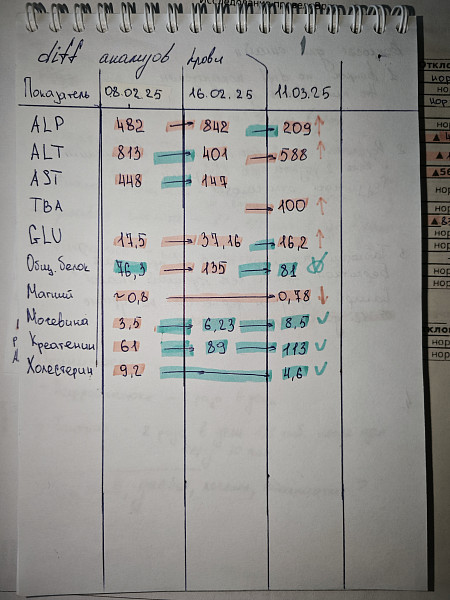 Исследования проведены
diff анализов крови
Показатель 08.02.25 16.02.25 11.03.25
ALP 482 → 842 → 209 ↑
ALT 813 → 401 → 588 ↑
AST 448 → 147
TBA → 100 ↑
GLU 17,5 → 37,16 → 16,2 ↑
Общ. белок 76,3 → 135 → 81 ✓
Магний ~0,8 → 0,78 ↓
Мочевина 3,5 → 6,23 → 8,5 ✓
Креатенин 61 → 89 → 113 ✓
Холестерин 9,2 → 4,6 ✓